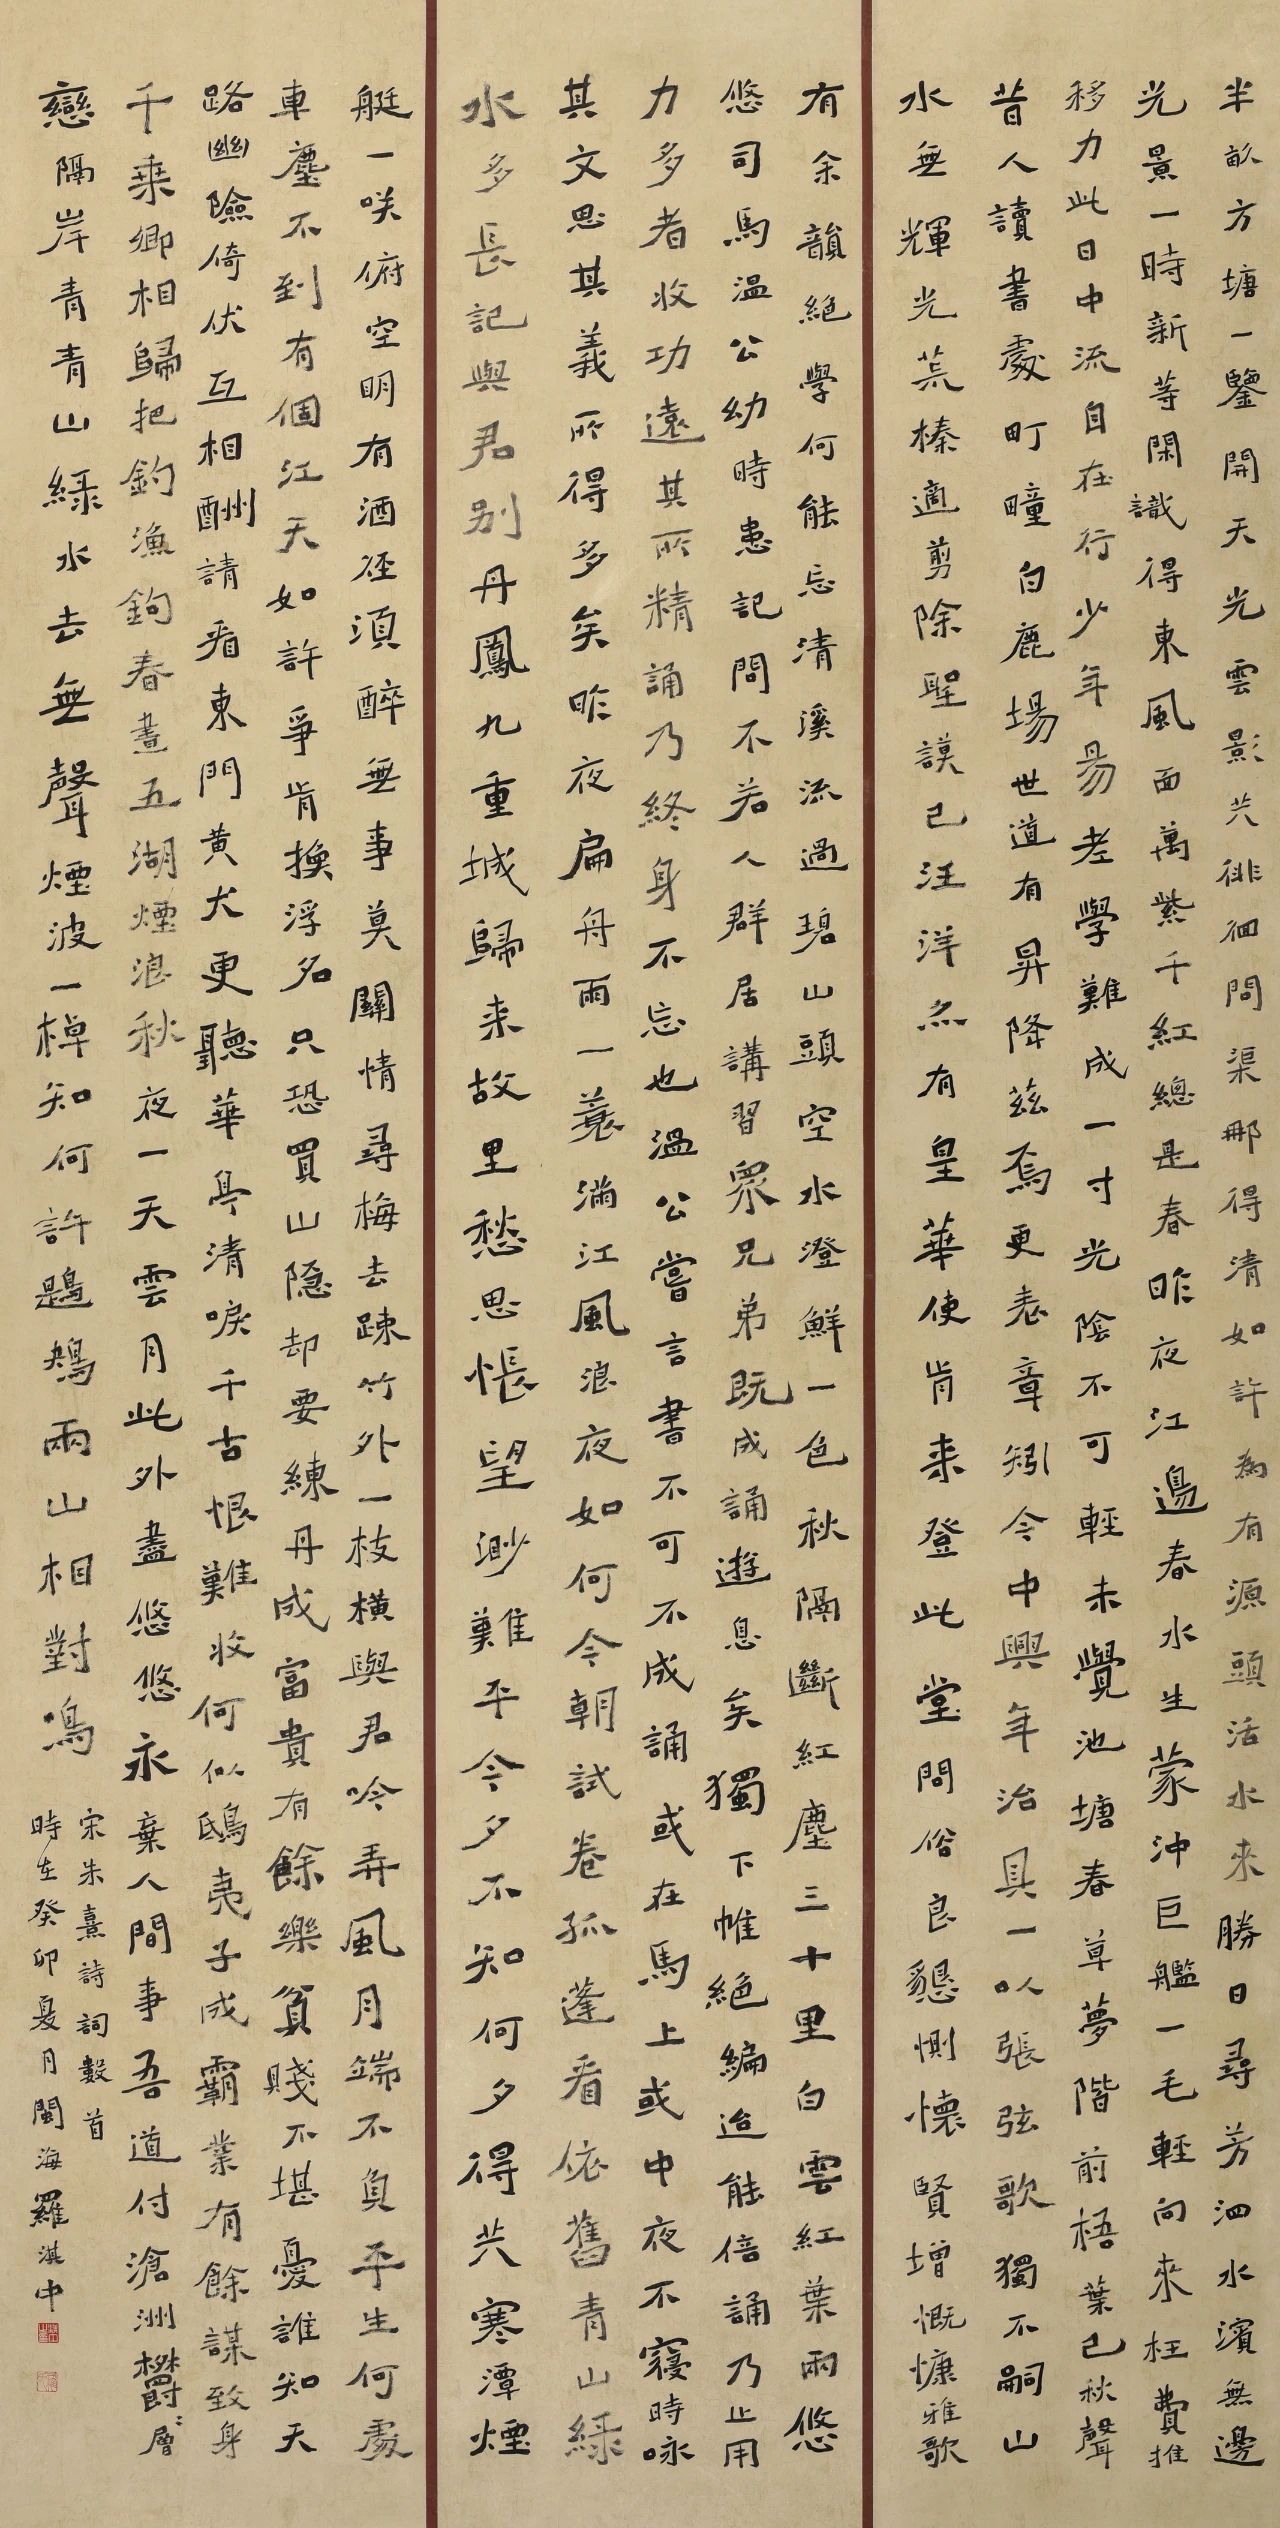 半畝方塘一鑒開天光雲影共徘徊問渠那得清如許為有源頭活水來勝日尋芳泗水濱無邊
光景一時新等閑識得東風面萬紫千紅總是春昨夜江邊春水生蒙沖巨艦一毛輕向來枉費推
移力此日中流自在行少年易老學難成一寸光陰不可輕未覺池塘春草夢階前梧葉已秋聲
昔人讀書處町疃白鹿場世道有昇降茲焉更表章矧今中興年治具一以張弦歌獨不嗣山
水無輝光荒榛適剪除聖謨已汪洋亦有皇華使肯來登此堂問俗良懇惻懷賢增慨慷雅歌
有余韻絕學何能忘清溪流過碧山頭空水澄鮮一色秋隔斷紅塵三十里白雲紅葉兩悠
悠司馬溫公幼時患記問不若人群居講習眾兄弟既成誦遊息矣獨下帷絕編迨能倍誦乃止用
力多者收功遠其所精誦乃終身不忘也溫公嘗言書不可不成誦或在馬上或中夜不寢時咏
其文思其義所得多矣昨夜扁舟雨一蓑滿江風浪夜如何今朝試卷孤蓬看依舊青山綠
水多長記與君別丹鳳九重城歸來故里愁思悵望渺難平今夕不知何夕得共寒潭煙
艇一咲俯空明有酒徑須醉無事莫關情尋梅去疎竹外一枝橫與君吟弄風月端不負平生何處
車塵不到有個江天如許爭肯換浮名只恐買山隱却要練丹成富貴有餘樂貧賤不堪憂誰知天
路幽險倚伏互相酬請看東門黃犬更聽華亭清唳千古恨難收何似鴟夷子成霸業有餘謀致身
千乘卿相歸把釣漁鉤春晝五湖煙浪秋夜一天雲月此外盡悠悠永棄人間事吾道付滄洲欝欝層
巒隔岸青青山綠水去無聲煙波一棹知何許鶗鴂兩山相對鳴
宋朱熹詩詞數首
時在癸卯夏月閩海羅淇中